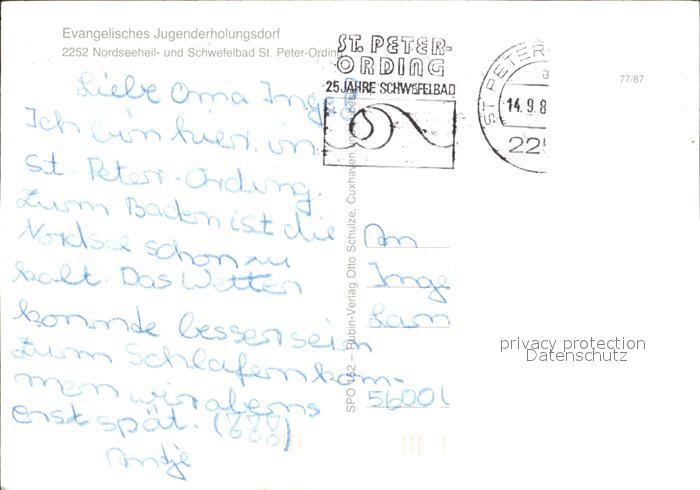 Evangelisches Jugenderholungsdorf
2252 Nordseeheil- und Schwefelbad St. Peter-Ording
ST. PETER-
ORDING
25 JAHRE SCHWEFELBAD
ST PETER
14.9.8
22
77/87
Liebe Oma Inge
Ich bin hier in
St. Peter-Ording.
Zum Baden ist die
Nordsee schon zu
kalt. Das Wetter
könnte besser sein
Zum Schlafen kom-
men wir abends
erst spät.
Antje
SPO 152 – Rubin-Verlag Otto Schulze, Cuxhaven
An
Inge
5600
privacy protection
Datenschutz